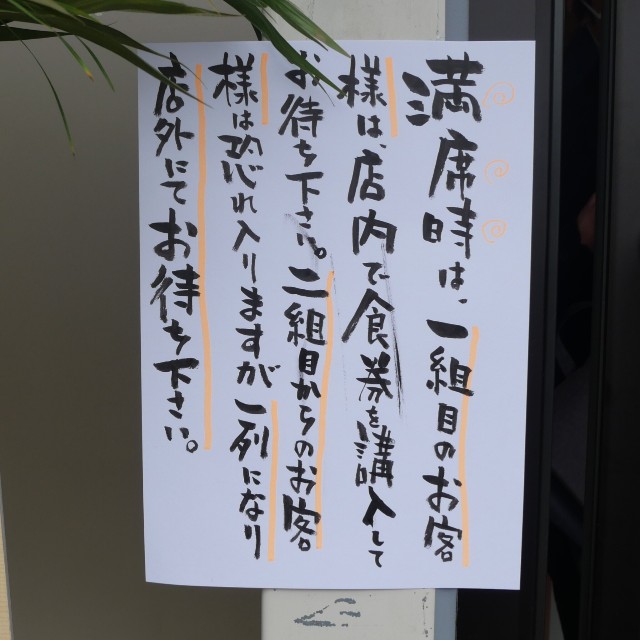 満席時は、一組目のお客
様は、店内で食券を購入して
お待ち下さい。二組目からのお客
様は恐れ入りますが一列になり
店外にてお待ち下さい。